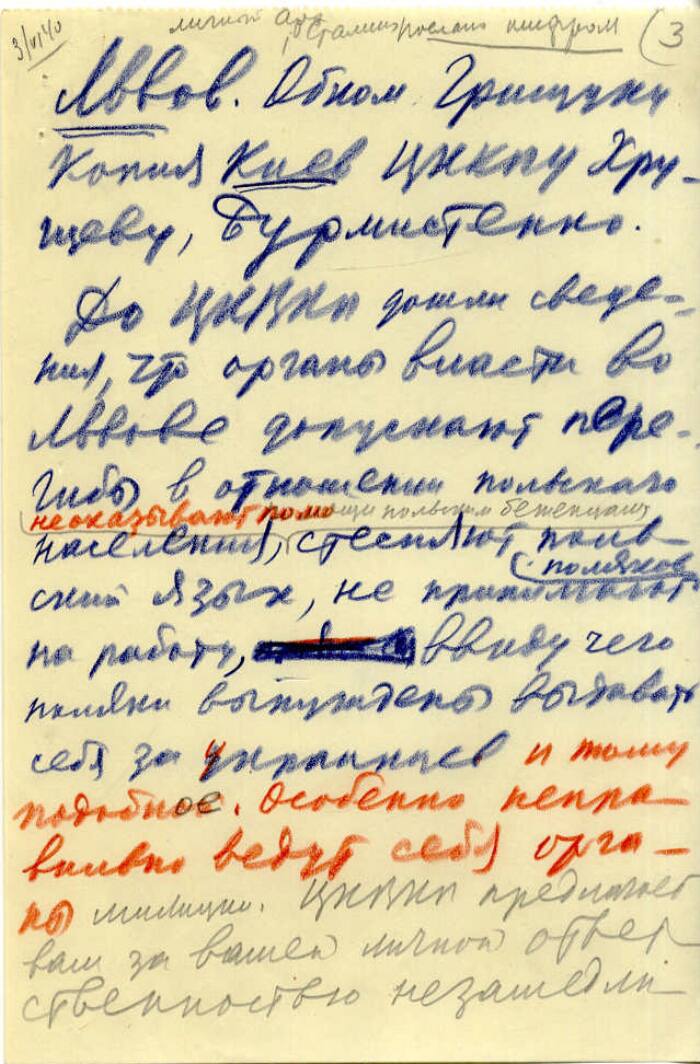 3/VI 40
личный арх. Сталина послано шифром (3
Львов. Обком Грищуку
Копия Киев ЦККПУ Хру-
щеву, Бурмистенко.
До ЦКВКП дошли сведе-
ния, что органы власти во
Львове допускают пере-
гибы в отношении польского
не оказывают помощи польским беженцам,
населения, стесняют поль-
ский язык, не принимают
(поляков
на работу, ввиду чего
поляки вынуждены выдавать
себя за украинцев и тому
подобное. Особенно непра-
вильно ведут себя орга-
ны милиции. ЦКВКП предлагает
вам за вашей личной ответ-
ственностью незамедли-